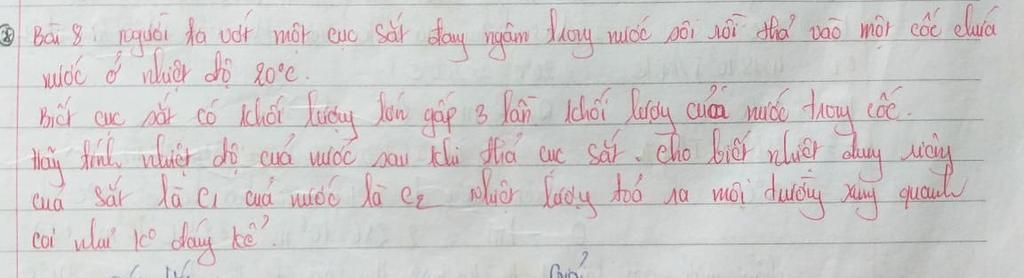 Bài 8: người ta vớt một cục sắt đang ngâm trong nước sôi rồi thả vào một cốc chứa
nước ở nhiệt độ 20°C.
Biết cục sắt có khối lượng lớn gấp 3 lần khối lượng của nước trong cốc.
Hãy tính nhiệt độ của nước sau khi thả cục sắt. Cho biết nhiệt dung riêng
của sắt là C1 của nước là C2 nhiệt lượng toả ra môi trường xung quanh
coi như ko đáng kể.